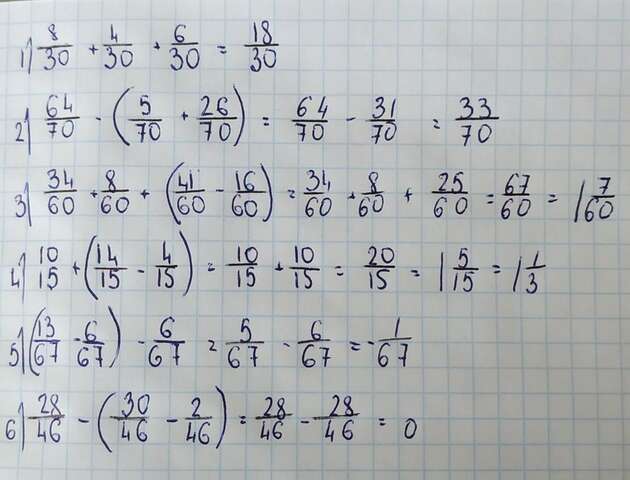 1) 8/30 + 4/30 + 6/30 = 18/30
2) 64/70 - (5/70 + 26/70) = 64/70 - 31/70 = 33/70
3) 34/60 + 8/60 + (41/60 - 16/60) = 34/60 + 8/60 + 25/60 = 67/60 = 1 7/60
4) 10/15 + (14/15 - 4/15) = 10/15 + 10/15 = 20/15 = 1 5/15 = 1 1/3
5) (13/67 - 6/67) - 6/67 = 5/67 - 6/67 = -1/67
6) 28/46 - (30/46 - 2/46) = 28/46 - 28/46 = 0